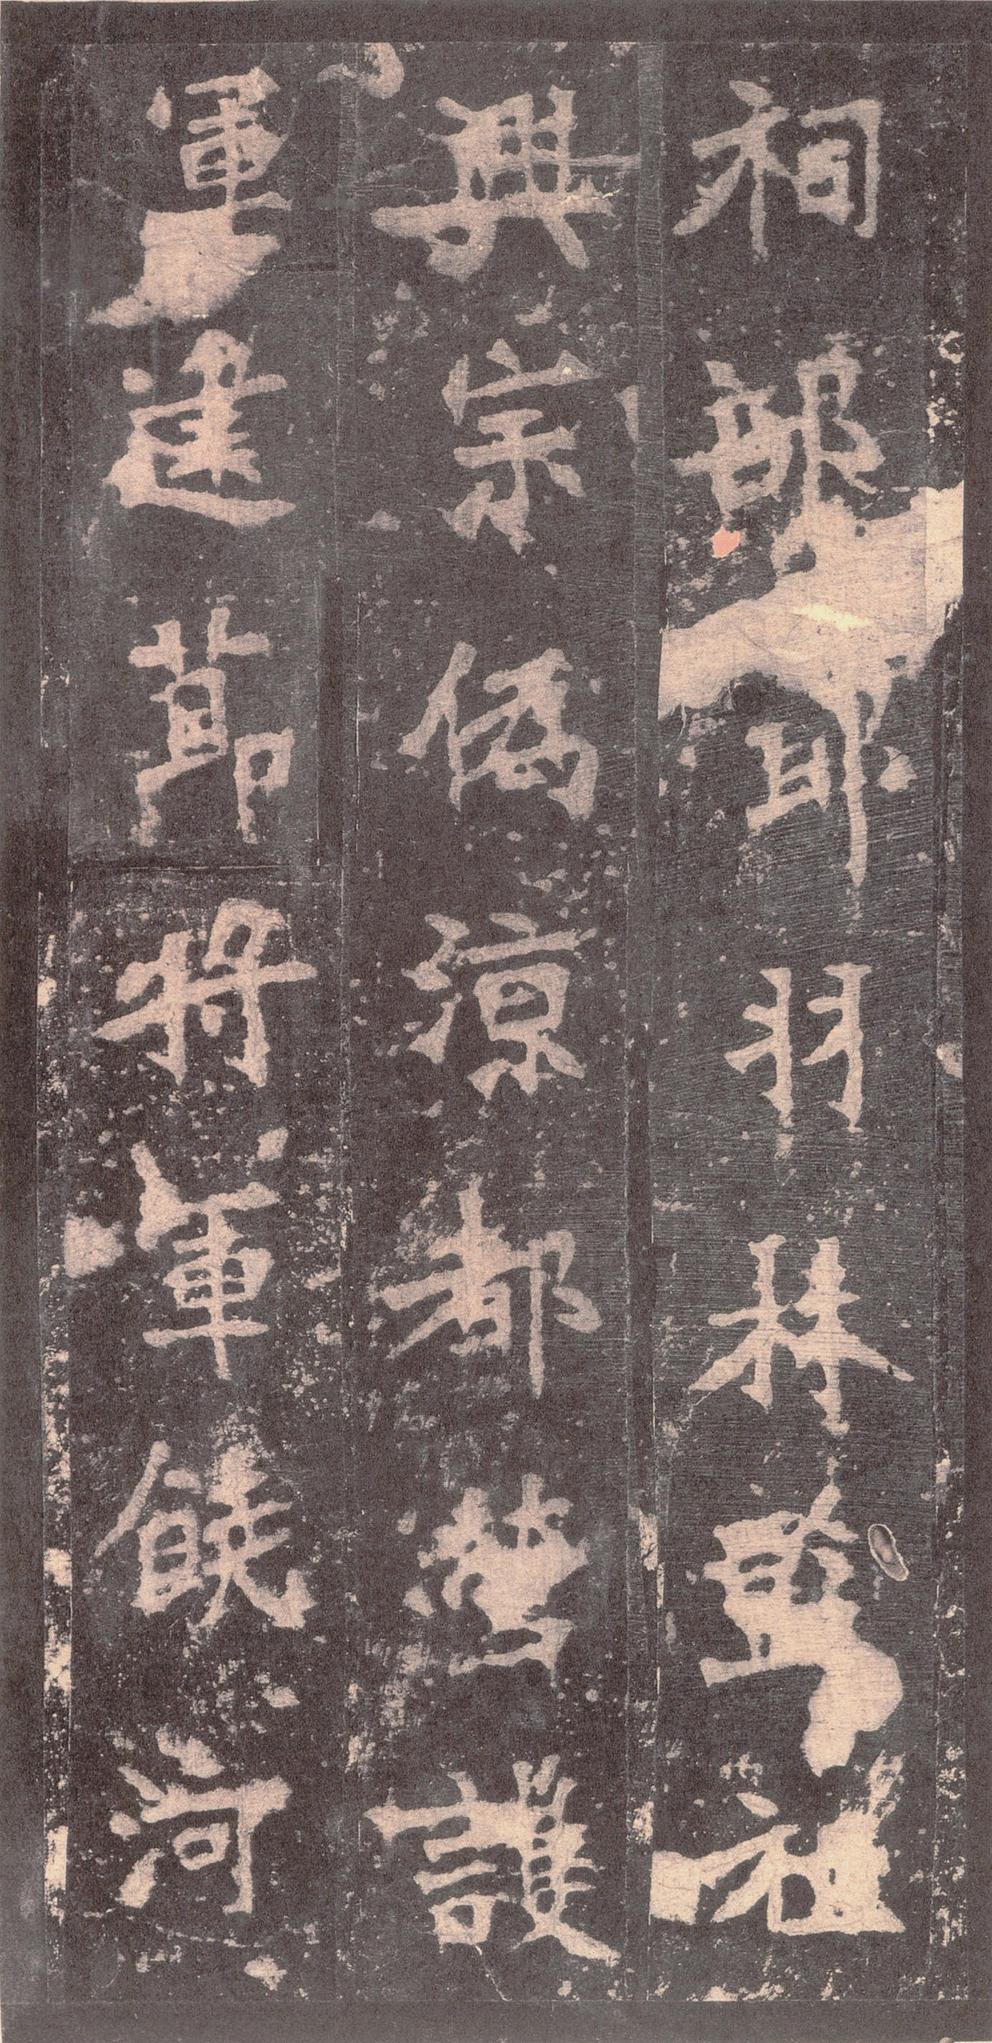 祠部郎羽林監祖
興宗偽涼都營護
軍建節將軍餘河